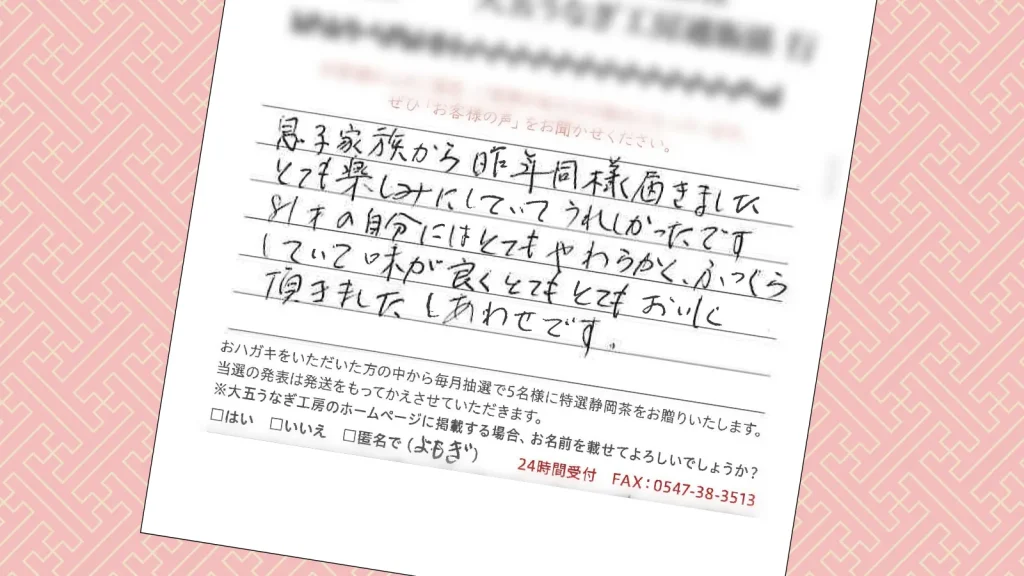 大五うなぎ工房通販係 行
ぜひ「お客様の声」をお聞かせください。
息子家族から昨年同様届きました
とても楽しみにしていてうれしかったです
81才の自分にはとてもやわらかく、ふっくら
していて味が良くとてもとてもおいしく
頂きました しあわせです。
おハガキをいただいた方の中から毎月抽選で5名様に特選静岡茶をお贈りいたします。
当選の発表は発送をもってかえさせていただきます。
※大五うなぎ工房のホームページに掲載する場合、お名前を載せてよろしいでしょうか?
□はい □いいえ □匿名で(よもぎ)
24時間受付 FAX:0547-38-3513